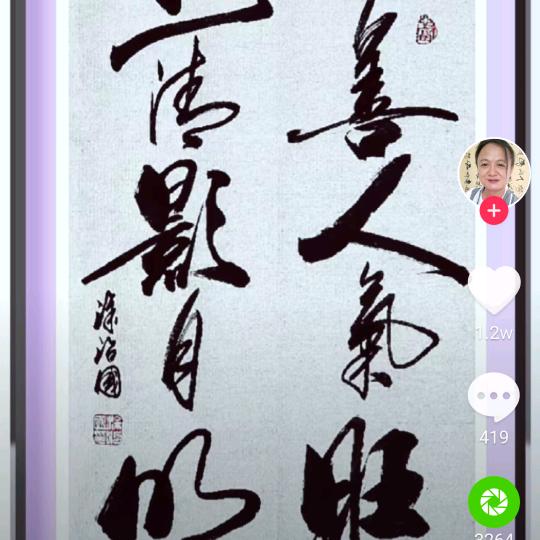 善人氣旺
清影
涂治國
1.2w
419
3264